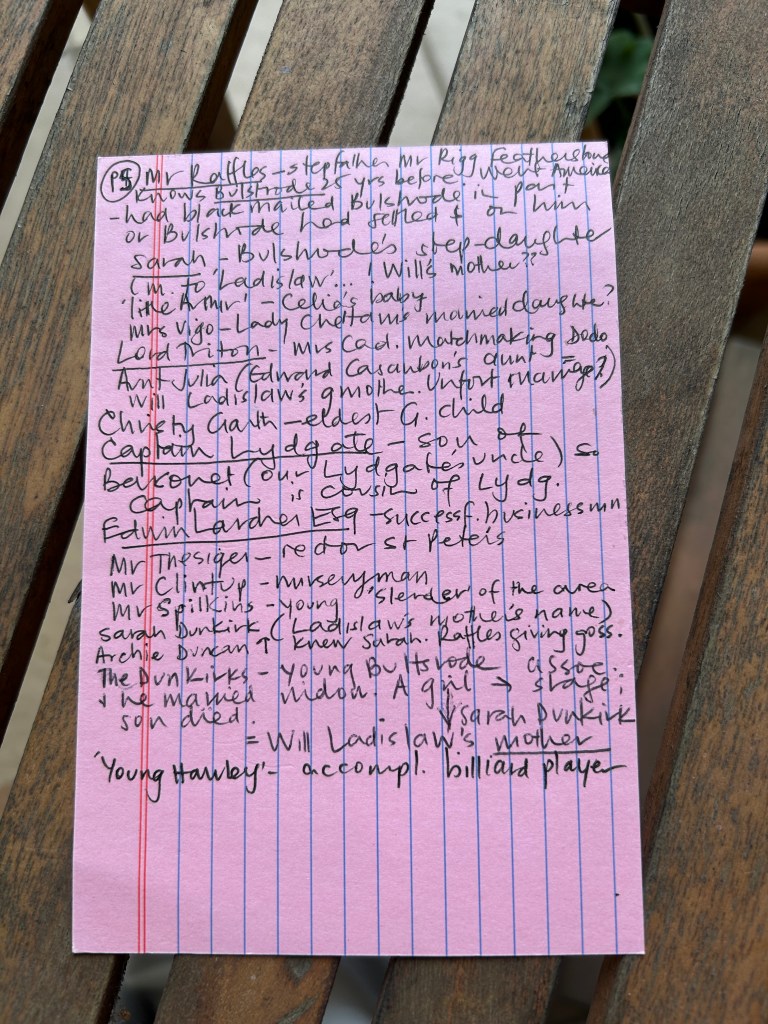 P5 Mr Raffles - stepfather Mr Rigg Featherstone
knows Bulstrode 25 yrs before. Went America
- had blackmailed Bulstrode in part
or Bulstrode had settled £ on him
Sarah - Bulstrode's step-daughter
(m. to 'Ladislaw'... ! Will's mother??
'little Arthur' - Celia's baby
Mrs Vigo - Lady Chettam's married daughter?
Lord Triton - Mrs Cad. matchmaking Dodo
Aunt Julia (Edward Casaubon's aunt =
Will Ladislaw's gmothe. Unfort marriage?)
Christy Garth - eldest G. child
Captain Lydgate - son of
Baronet (our Lydgate's uncle) so
Captain is cousin of Lydg.
Edwin Larcher Esq - successf. businessmn
Mr Thesiger - rector St Peter's
Mr Clintup - nurseryman
Mr Spilkins - young 'slender' of the area
Sarah Dunkirk (Ladislaw's mother's name)
Archie Duncan ↑ knew Sarah. Raffles giving goss.
The Dunkirks - young Bultsrode assoc.
+ he married widow. A girl → stage;
son died. ↓ Sarah Dunkirk
= Will Ladislaw's mother
'Young Hawley' - accompl. billiard player